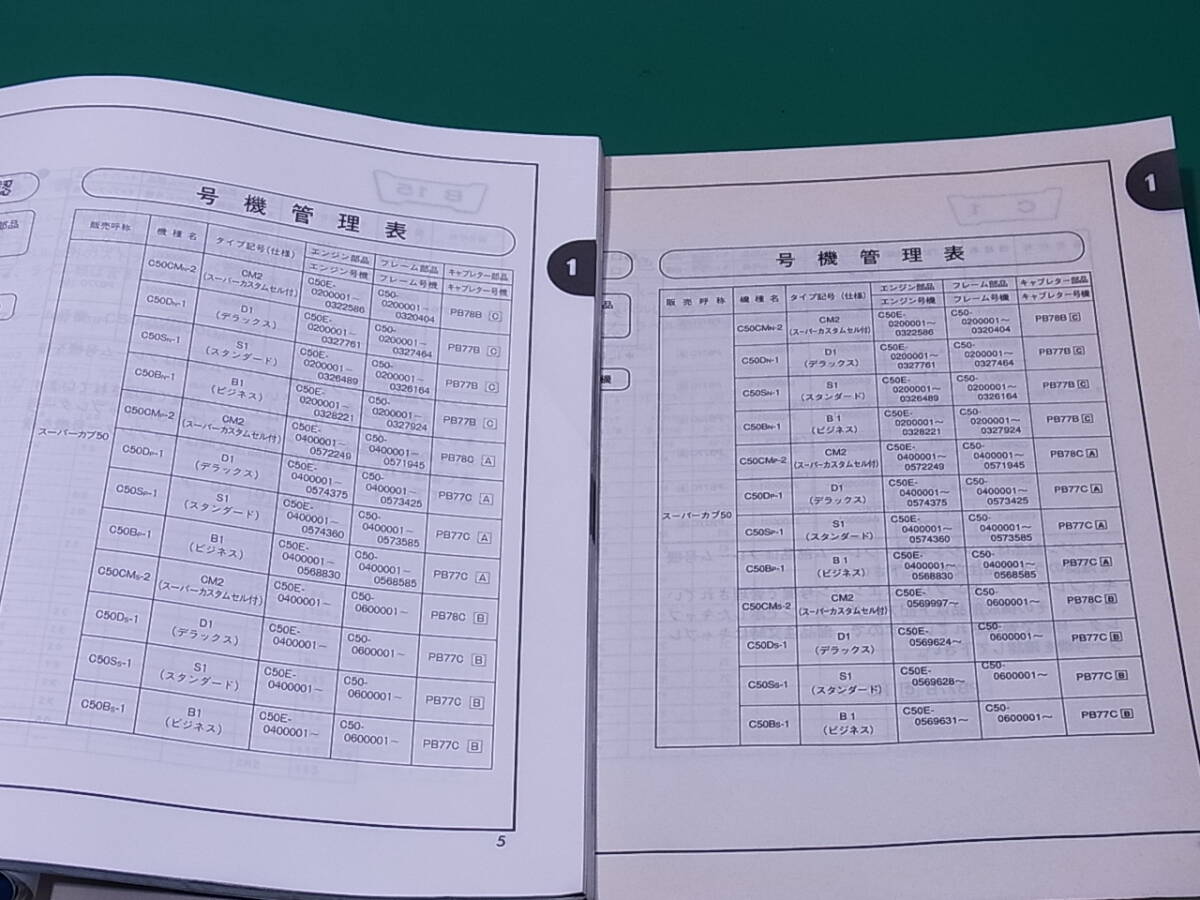 認
部品
号機管理表
販売呼称 機種名 タイプ記号(仕様) エンジン部品 フレーム部品 キャブレター部品
エンジン号機 フレーム号機 キャブレター号機
スーパーカブ50
C50CMN-2 CM2 (スーパーカスタムセル付) C50E-0200001~0322586 C50-0200001~0320404 PB78B C
C50DN-1 D1 (デラックス) C50E-0200001~0327761 C50-0200001~0327464 PB77B C
C50SN-1 S1 (スタンダード) C50E-0200001~0326489 C50-0200001~0326164 PB77B C
C50BN-1 B1 (ビジネス) C50E-0200001~0328221 C50-0200001~0327924 PB77B C
C50CMP-2 CM2 (スーパーカスタムセル付) C50E-0400001~0572249 C50-0400001~0571945 PB78C A
C50DP-1 D1 (デラックス) C50E-0400001~0574375 C50-0400001~0573425 PB77C A
C50SP-1 S1 (スタンダード) C50E-0400001~0574360 C50-0400001~0573585 PB77C A
C50BP-1 B1 (ビジネス) C50E-0400001~0568830 C50-0400001~0568585 PB77C A
C50CMS-2 CM2 (スーパーカスタムセル付) C50E-0400001~ C50-0600001~ PB78C B
C50DS-1 D1 (デラックス) C50E-0400001~ C50-0600001~ PB77C B
C50SS-1 S1 (スタンダード) C50E-0400001~ C50-0600001~ PB77C B
C50BS-1 B1 (ビジネス) C50E-0400001~ C50-0600001~ PB77C B
1
5
品
機
号機管理表
販売呼称 機種名 タイプ記号(仕様) エンジン部品 フレーム部品 キャブレター部品
エンジン号機 フレーム号機 キャブレター号機
スーパーカブ50
C50CMN-2 CM2 (スーパーカスタムセル付) C50E-0200001~0322586 C50-0200001~0320404 PB78B C
C50DN-1 D1 (デラックス) C50E-0200001~0327761 C50-0200001~0327464 PB77B C
C50SN-1 S1 (スタンダード) C50E-0200001~0326489 C50-0200001~0326164 PB77B C
C50BN-1 B1 (ビジネス) C50E-0200001~0328221 C50-0200001~0327924 PB77B C
C50CMP-2 CM2 (スーパーカスタムセル付) C50E-0400001~0572249 C50-0400001~0571945 PB78C A
C50DP-1 D1 (デラックス) C50E-0400001~0574375 C50-0400001~0573425 PB77C A
C50SP-1 S1 (スタンダード) C50E-0400001~0574360 C50-0400001~0573585 PB77C A
C50BP-1 B1 (ビジネス) C50E-0400001~0568830 C50-0400001~0568585 PB77C A
C50CMS-2 CM2 (スーパーカスタムセル付) C50E-0569997~ C50-0600001~ PB78C B
C50DS-1 D1 (デラックス) C50E-0569624~ C50-0600001~ PB77C B
C50SS-1 S1 (スタンダード) C50E-0569628~ C50-0600001~ PB77C B
C50BS-1 B1 (ビジネス) C50E-0569631~ C50-0600001~ PB77C B
1